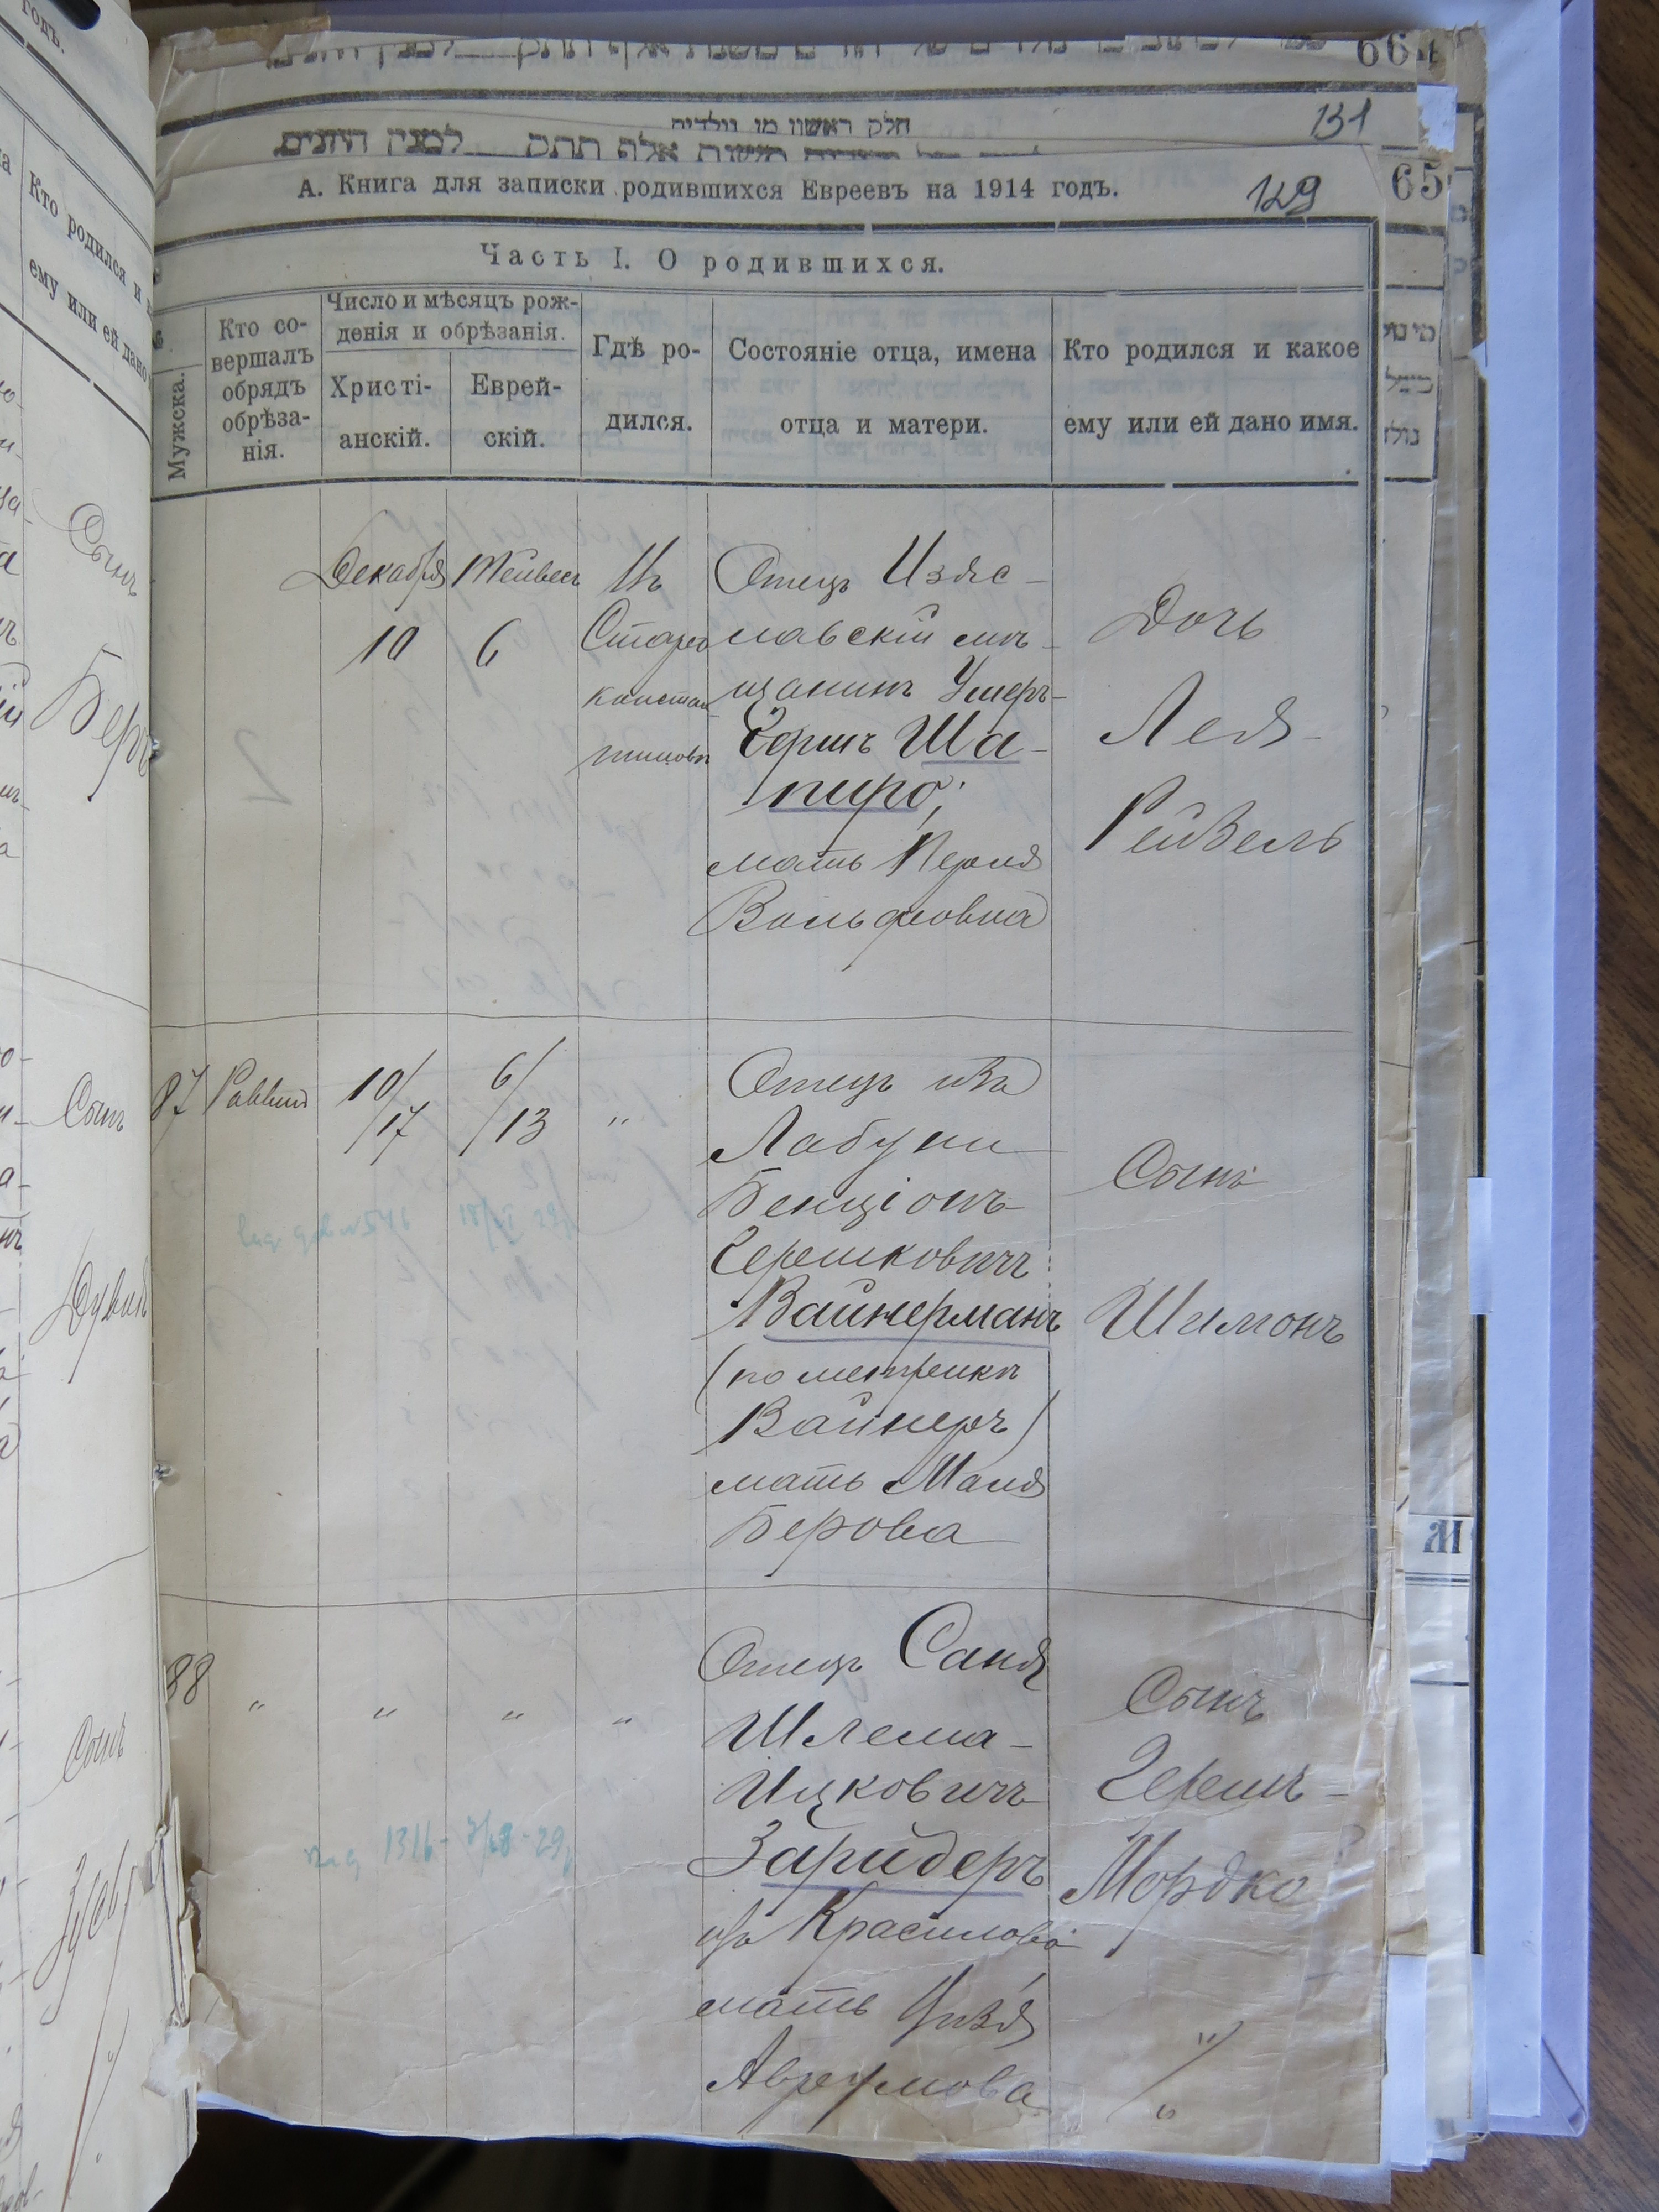 664
131
חלק ראשון מן
אלף תתק למנין היונים
А. Книга для записки родившихся Евреевъ на 1914 годъ.
129
65
Часть I. О родившихся.
Мужска.
Кто со-
вершалъ
обрядъ
обрѣза-
нія.
Число и мѣсяцъ рож-
денія и обрѣзанія.
Христі-
анскій.
Еврей-
скій.
Гдѣ ро-
дился.
Состояніе отца, имена
отца и матери.
Кто родился и какое
ему или ей дано имя.
Декабря
10
Тейвеса
6
Въ
Старо
констан
тиновѣ
Отецъ Изяс-
лавскій мѣ-
щанинъ Ушеръ-
Гершъ Ша-
пиро;
мать Перля
Вольфовна
Дочь
Лея-
Рейзель
87
Раввинъ
10/
/17
6/
/13
"
Отецъ изъ
Лабуни
Бенціонъ
Гершковичъ
Вайнерманъ
(по метрикѣ
Вайнеръ)
мать Маня
Берова
Сынъ
Шимонъ
88
"
"
"
"
Отецъ Саня
Шлема-
Ицковичъ
Заридеръ
изъ Красилова
мать Цизя
Аврумова
Сынъ
Гершъ-
Мордко
"
"
1316
Кто родился и
ему или ей дано
Сынъ
Беръ
Сынъ
Дувидъ
Сынъ